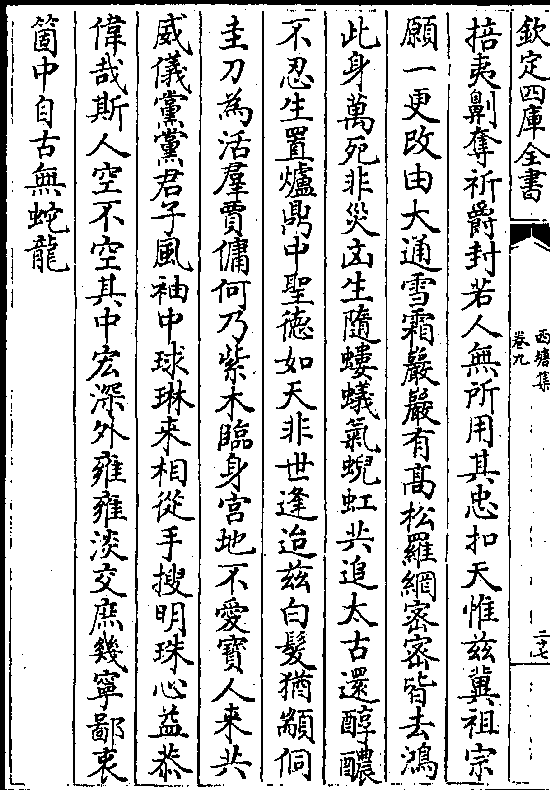 欽定四庫全書
西塘集
卷九
二十七
掊夷劓奪祈爵封若人無所用其忠扣天惟兹冀祖宗
願一更改由大通雪霜嚴嚴有髙松羅網密密皆去鴻
此身萬死非災凶生隨螻蟻氣蜺虹共追太古還醇醲
不忍生置爐鼎中聖德如天非世逢迨兹白髮猶顓侗
圭刀為活羣賈傭何乃紫木臨身宫地不愛寶人来共
威儀黨黨君子風袖中球琳来相從手搜明珠心益恭
偉哉斯人空不空其中宏深外雍雍淡交庶幾寧鄙衷
箇中自古無蛇龍